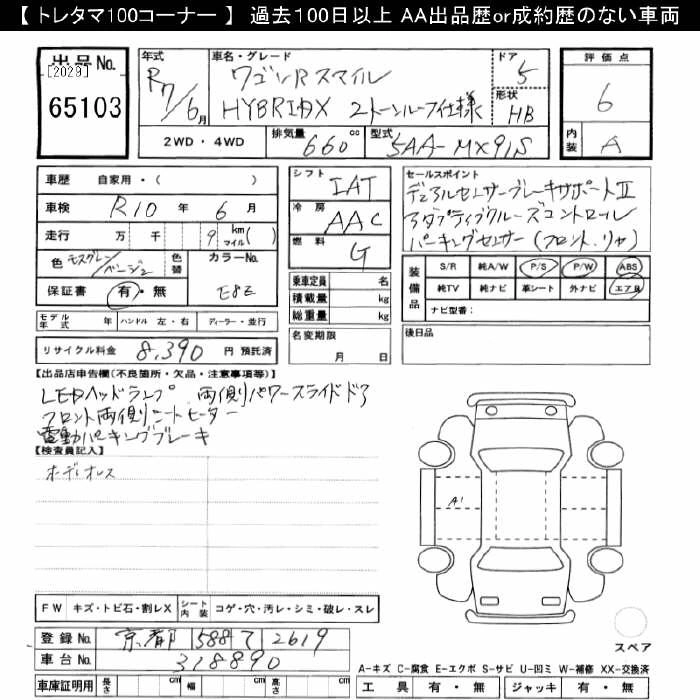 【 トレタマ100コーナー 】 過去100日以上 AA出品歴or成約歴のない車両
出品No.
[2029]
65103
年式
R7/6月
車名・グレード
ワゴンRスマイル
HYBRIDX 2トーンルーフ仕様
ドア
5
形状
HB
評価点
6
内装
A
2WD・4WD
排気量
660 cc
型式
5AA-MX91S
車歴 自家用・( )
車検 R10 年 6 月
走行 万 千 9 km マイル( )
色 モスグレー/ベージュ
色替
カラーNo.
E8E
保証書 有・無
シフト IAT
冷房 AAC
燃料 G
乗車定員 名
積載量 kg
総重量 kg
セールスポイント
デュアルセンサーブレーキサポートⅡ
アダプティブクルーズコントロール
パーキングセンサー(フロント.リヤ)
装備品
S/R 純A/W P/S P/W ABS
純TV 純ナビ 革シート 外ナビ エアB
ナビ型番:
モデル年式 年 ハンドル 左・右 ディーラー・並行
名変期限
月 日
後日品
リサイクル料金 8,390 円 預託済
【出品店申告欄(不良箇所・欠品・注意事項等)】
LEDヘッドランプ 両側パワースライドドア
フロント両側シートヒーター
電動パーキングブレーキ
【検査員記入】
ボディオレス
A1
FW キズ・トビ石・割レX
シート内装 コゲ・穴・汚レ・シミ・破レ・スレ
登録No. 京都 588 て 2619
車台No. 318890
スペア
A-キズ C-腐食 E-エクボ S-サビ U-凹ミ W-補修 XX-交換済
車庫証明用 長さ cm 幅 cm 高さ cm
工具 有・無 ジャッキ 有・無